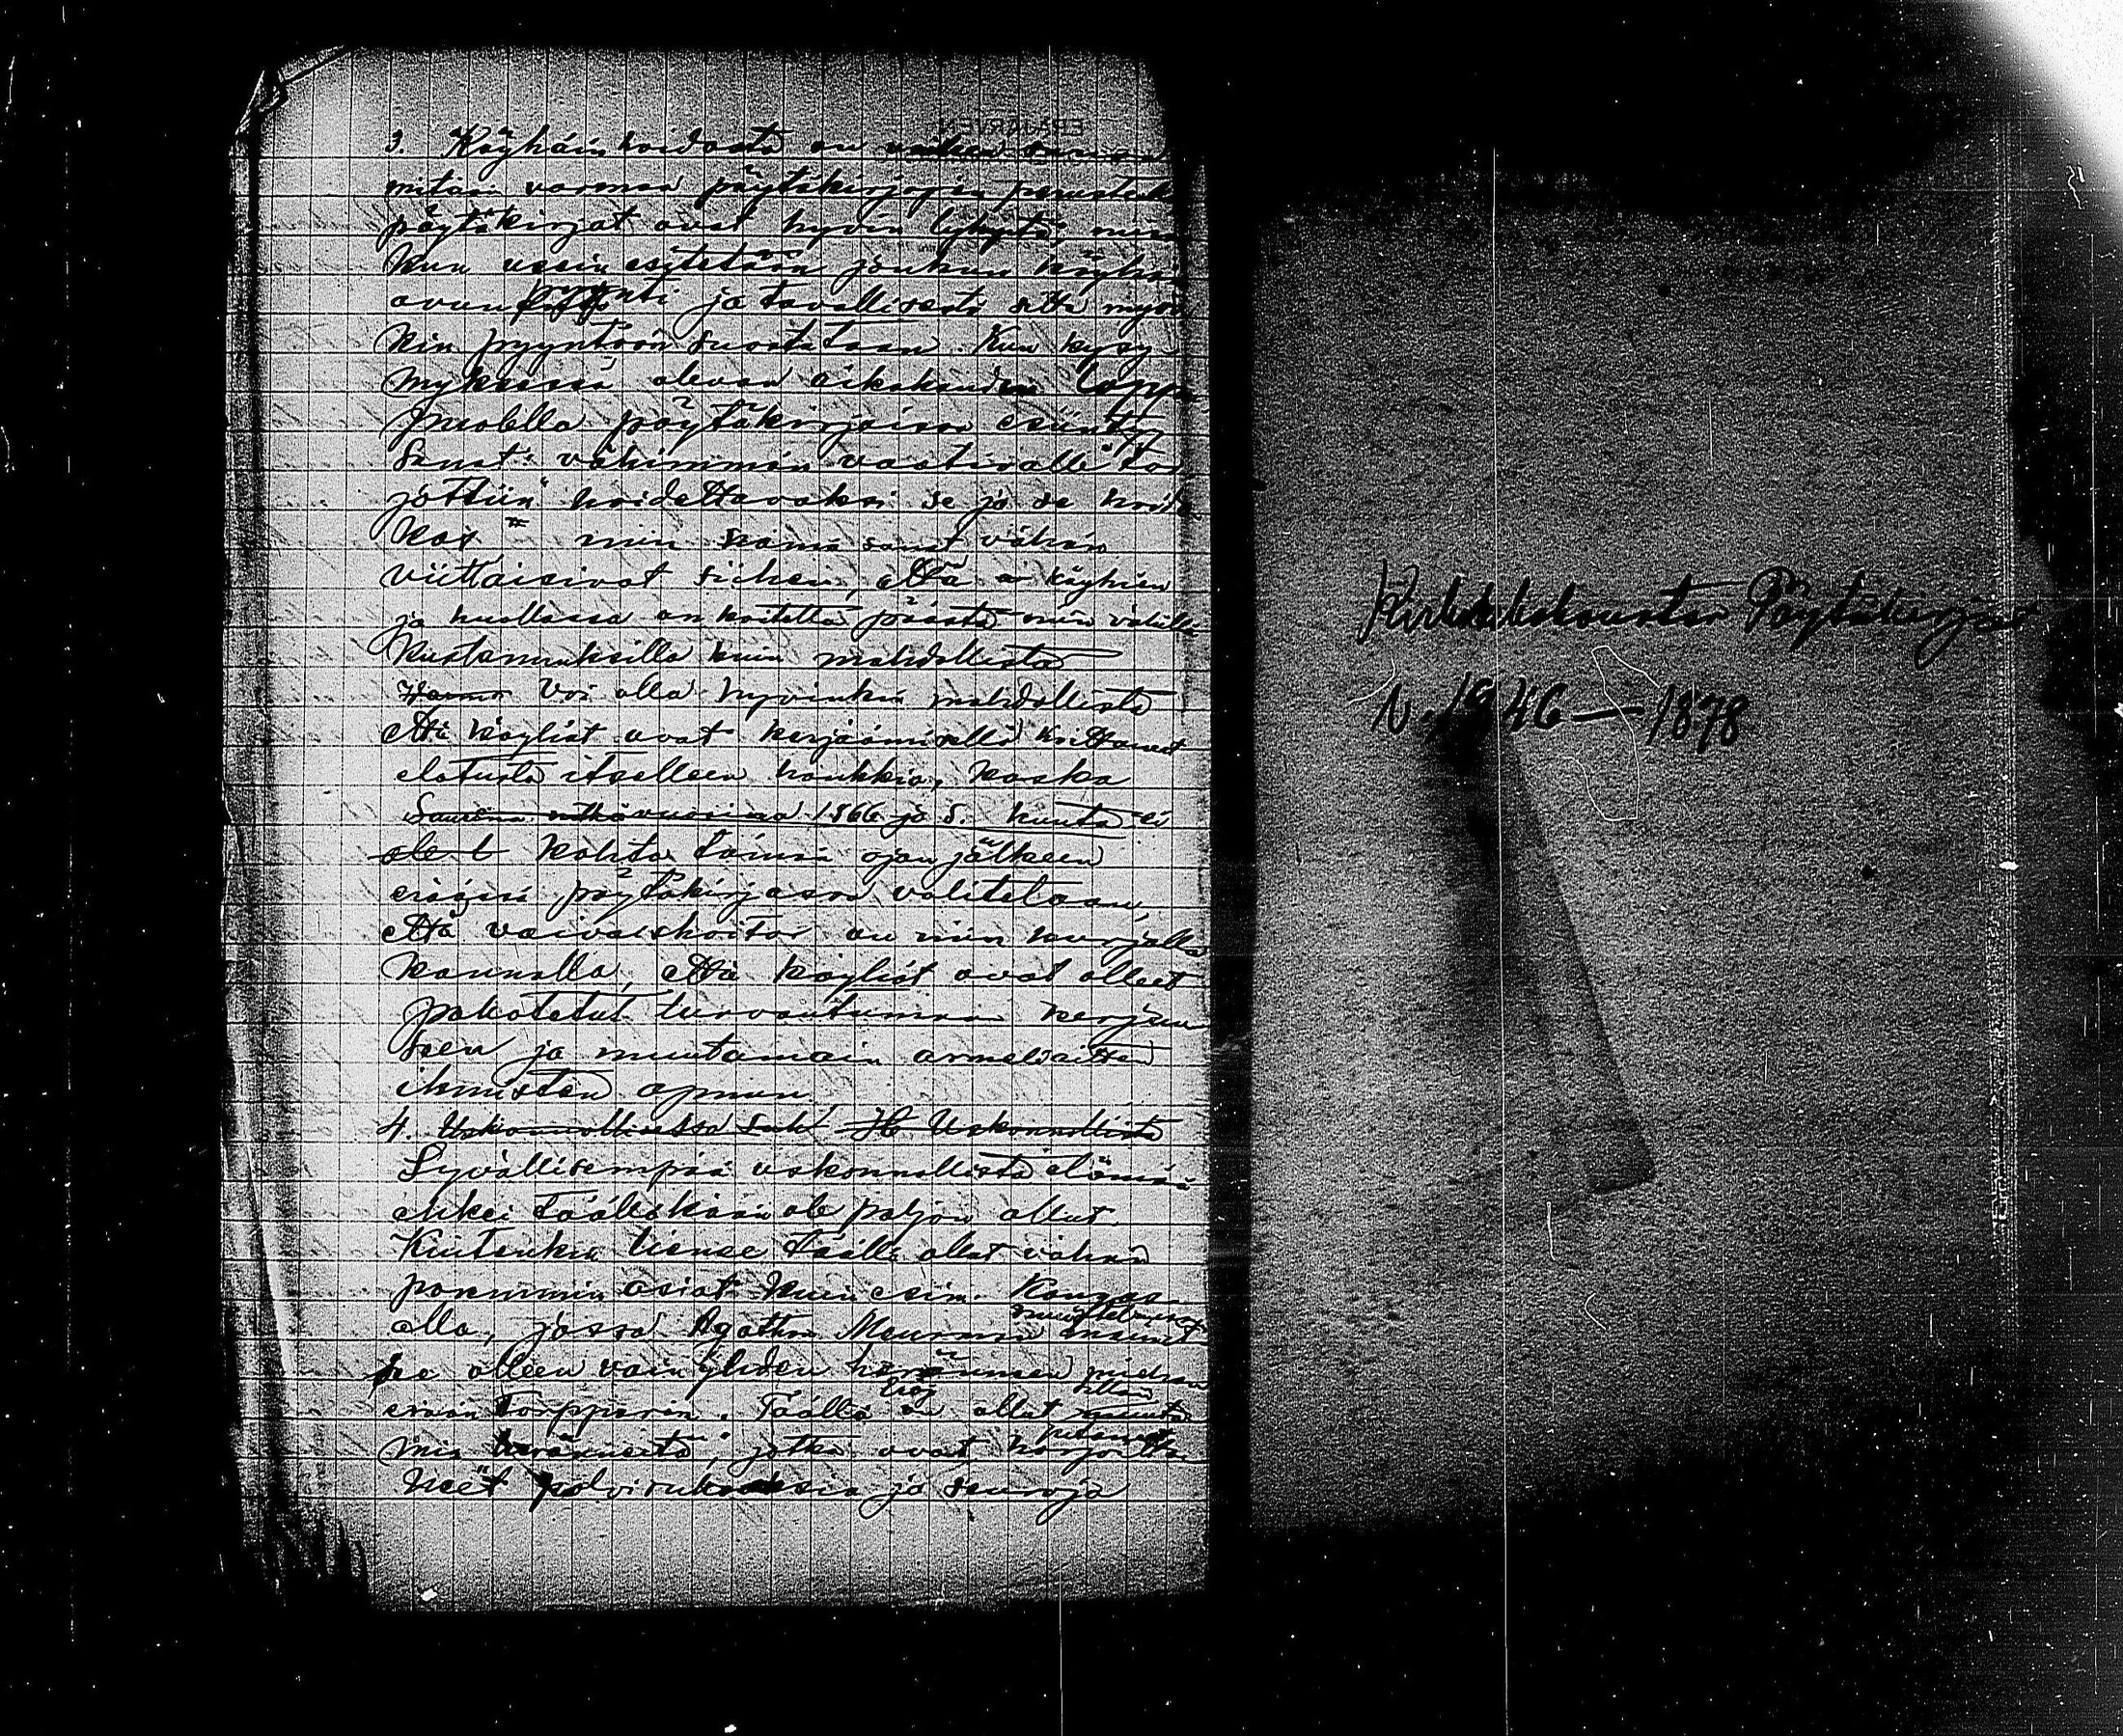 3. Köyhäinhoidosta on vaikea sanoa
mitään varmaa pöytäkirjojen perusteella
pöytäkirjat ovat hyvin lyhyitä, niin
kun usein esitetään jonkun köyhän
avunpyyntö ja tavallisesti sitä myös
kin pyyntöön suostutaan. Kun kysy
myksessä olevan aikakauden loppu
puolella pöytäkirjoissa esiintyy
sanat "vähimmän vaativalle tar
jottiin hoidettavaksi se ja se hoido
kas" niin nämä sanat vähän
viittaisivat siihen, että köyhien
ja huollossa on koitettu päästä niin vähillä
kustannuksilla kuin mahdollista
Voi olla hyvinkin mahdollista
että köyhät ovat kerjäämisellä koittaneet
elatusta itselleen hankkia, koska
Suurina nälkävuosina 1866 ja 8. kunta ei
ole t kohta tämän ajan jälkeen
eräässä pöytäkirjassa valitetaan,
että vaivaishoito on niin kurjalla
kannalla, että köyhät ovat olleet
pakotetut turvautumaan kerjuu
seen ja muutamain armeliaitten
ihmisten apuun.
4. Uskonnollisessa suh Uskonnollista
Syvällisempää uskonnollista elämää
ehkei täälläkään ole paljon ollut.
Kuitenkin lienee täällä ollut vähän
paremmin asiat kuin esim. Kangas
alla, jossa Agathon Meurman
se olleen vain yhden heränneen miehen
erään torpparin. Täällä on ollut
min heränneitä, jotka ovat harjoitta
neet polvirukouksia ja seuroja
Kirkonkokousten Pöytäkirjat
v. 1846—1878